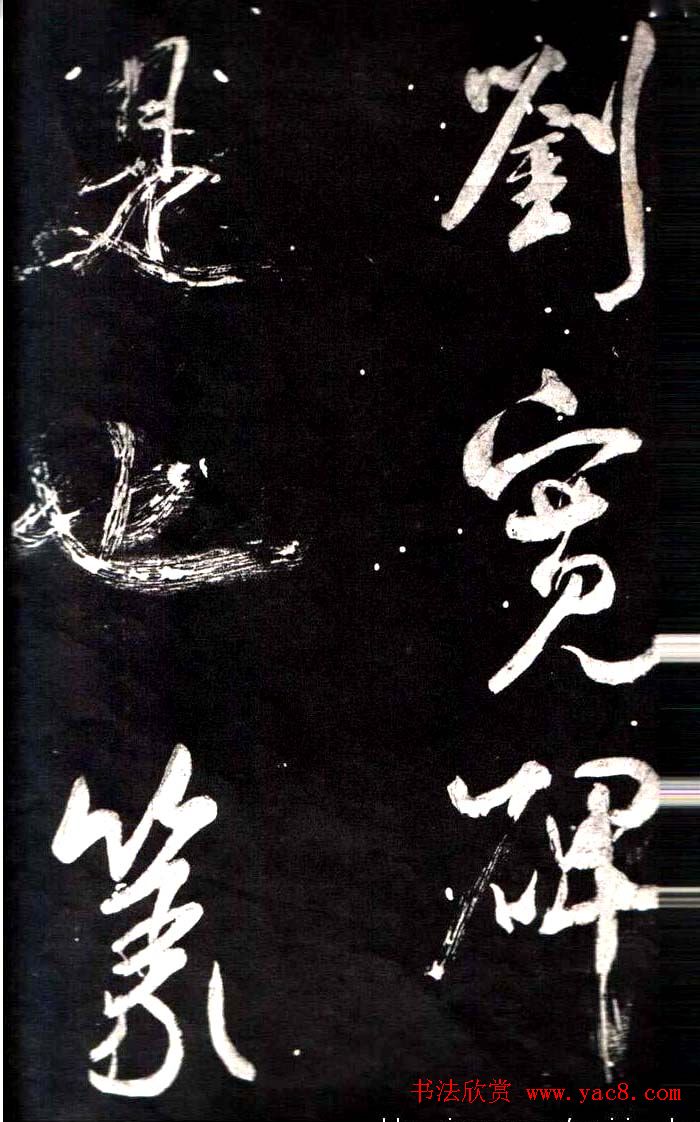 劉寬碑
是也篆
书法欣赏 www.yac8.com